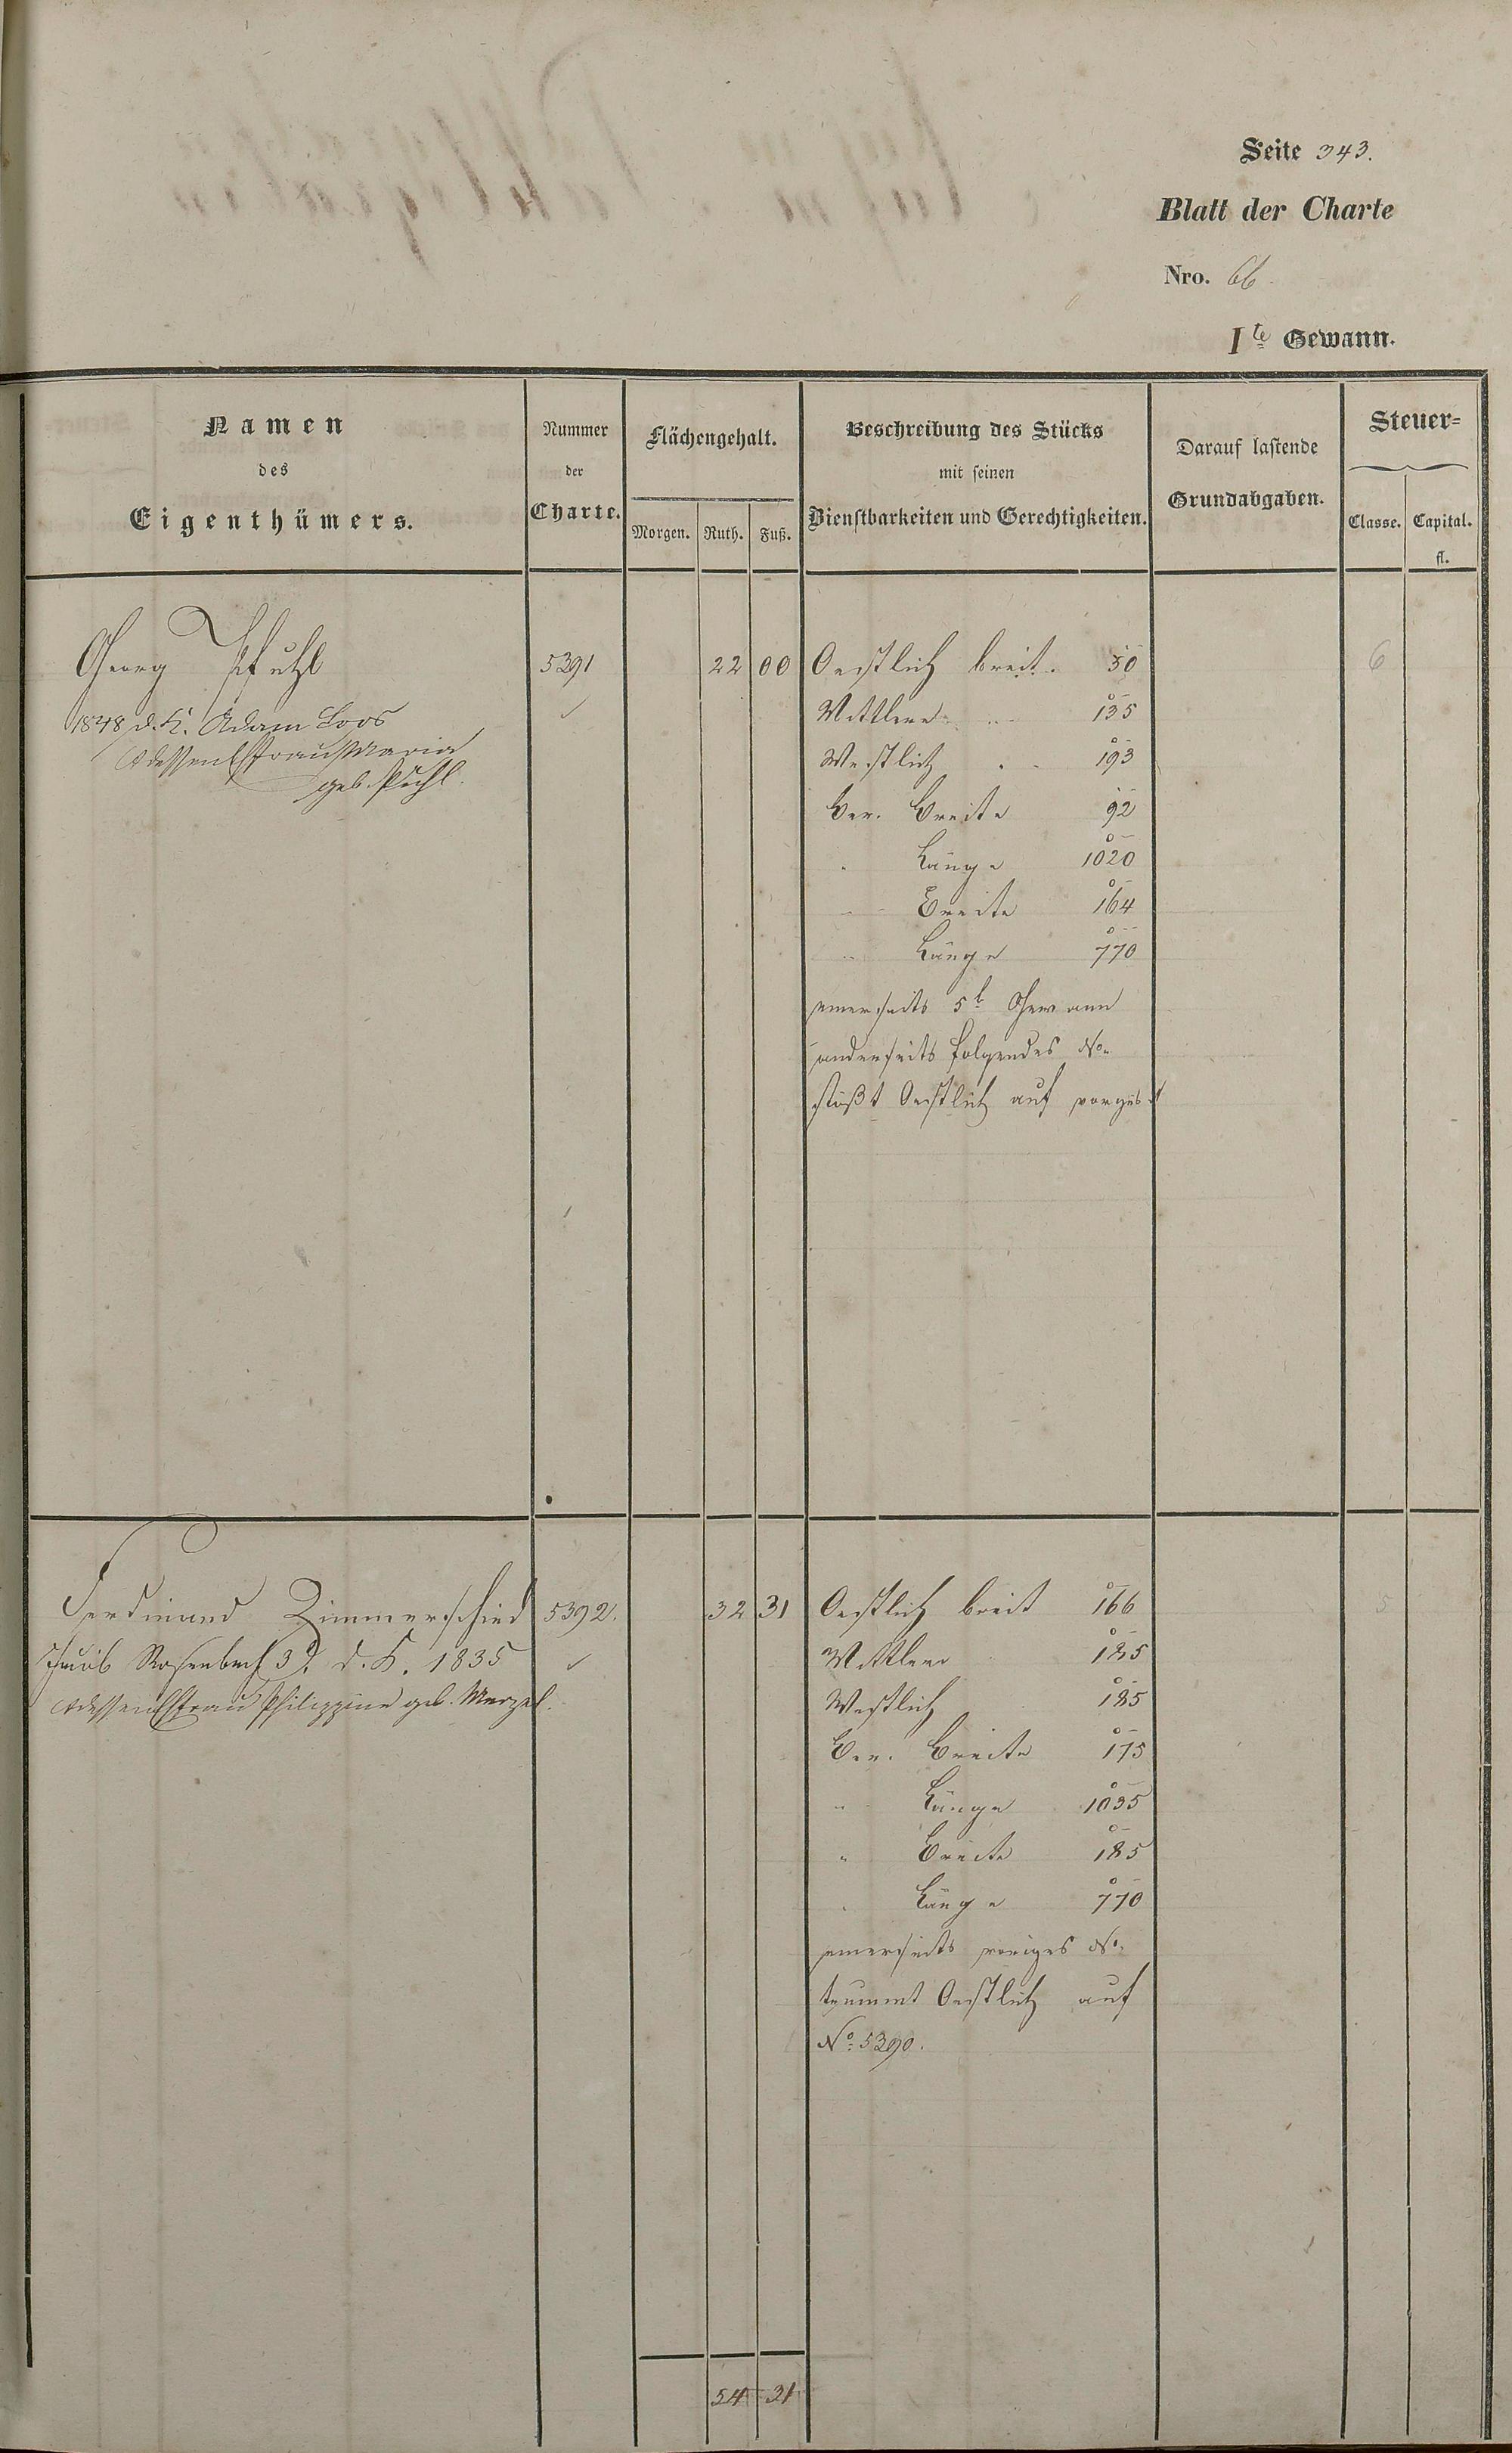 Seite 343.
Blatt der Charte
Nro. 66
Ite Gewann.
Namen des Eigenthümers.
Nummer der Charte.
Flächengehalt.
Morgen. Ruth. Fuß.
Beschreibung des Stücks mit seinen Dienstbarkeiten und Gerechtigkeiten.
Darauf lastende Grundabgaben.
Steuer=
Classe. Capital. fl.
Georg Pfuhl 5391 22 00 Oestlich breit 50 6
1848 d. K. Adam Loos Mittlere 135
Westlich 193
geb. Pfuhl.
Ver. Breite 92
" Länge 1020
" Breite 164
" Länge 770
einerseits 5te Gewann
anderseits folgendes No
stößt Oestlich auf voriges
Ferdinand Zimmerschied 5392. 32 31 Oestlich breit 166 5
Jacob Rosenbach 3r d. K. 1835 Mittlere 185
dessen Ehefrau Philippine geb. Merzel. Westlich 185
Ver. Breite 175
" Länge 1035
" Breite 185
" Länge 770
einerseits voriges No
Oestlich auf
No 5390.
54 31